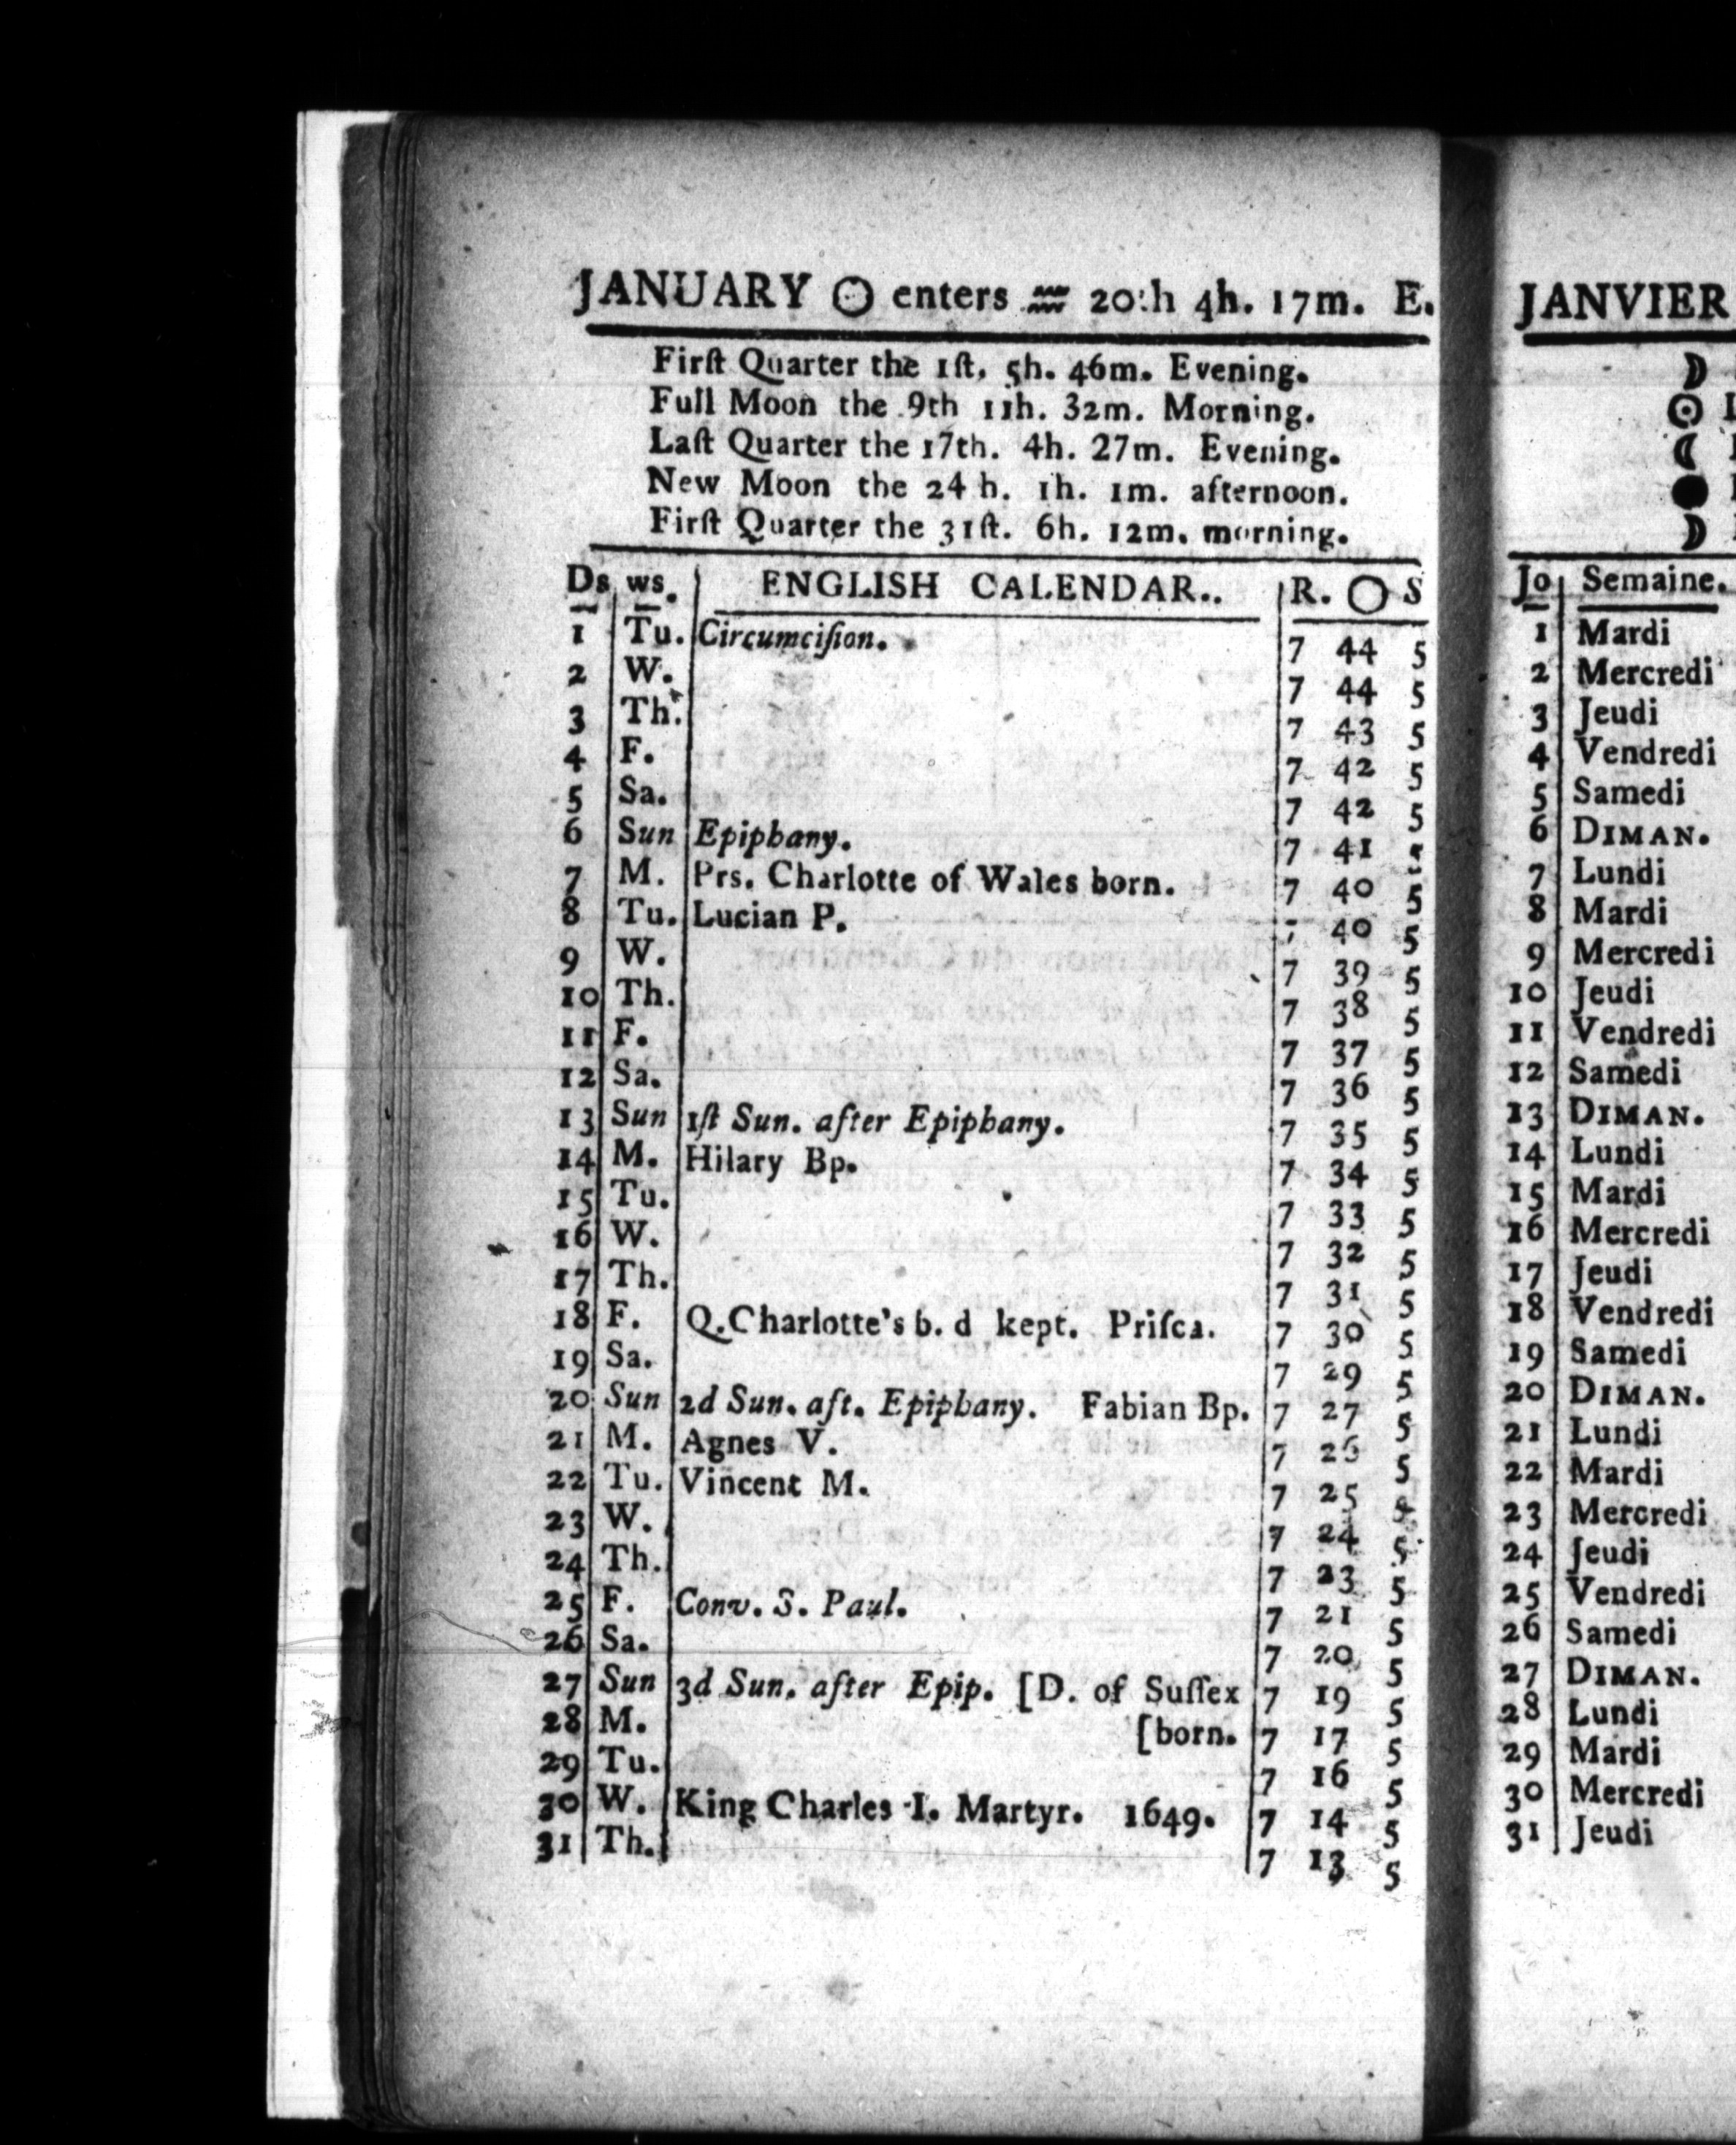 JANUARY ☉ enters ♒ 20th 4h. 17m. E.
Firſt Quarter the 1ſt, 5h. 46m. Evening.
Full Moon the 9th 11h. 32m. Morning.
Laſt Quarter the 17th. 4h. 27m. Evening.
New Moon the 24 h. 1h. 1m. afternoon.
Firſt Quarter the 31ſt. 6h. 12m. morning.
Ds ws. ENGLISH CALENDAR.. R. ○ S
1 Tu. Circumciſion. 7 44 5
2 W. 7 44 5
3 Th. 7 43 5
4 F. 7 42 5
5 Sa. 7 42 5
6 Sun Epiphany. 7 41 5
7 M. Prs. Charlotte of Wales born. 7 40 5
8 Tu. Lucian P. 7 40 5
9 W. 7 39 5
10 Th. 7 38 5
11 F. 7 37 5
12 Sa. 7 36 5
13 Sun 1ſt Sun. after Epiphany. 7 35 5
14 M. Hilary Bp. 7 34 5
15 Tu. 7 33 5
16 W. 7 32 5
17 Th. 7 31 5
18 F. Q. Charlotte's b. d kept. Priſca. 7 30 5
19 Sa. 7 29 5
20 Sun 2d Sun. aft. Epiphany. Fabian Bp. 7 27 5
21 M. Agnes V. 7 26 5
22 Tu. Vincent M. 7 25 5
23 W. 7 24 5
24 Th. 7 23 5
25 F. Conv. S. Paul. 7 21 5
26 Sa. 7 20 5
27 Sun 3d Sun. after Epip. [D. of Suſſex 7 19 5
28 M. [born. 7 17 5
29 Tu. 7 16 5
30 W. King Charles I. Martyr. 1649. 7 14 5
31 Th. 7 13 5
JANVIER
☽
☉
☾
●
☽
Jo Semaine.
1 Mardi
2 Mercredi
3 Jeudi
4 Vendredi
5 Samedi
6 DIMAN.
7 Lundi
8 Mardi
9 Mercredi
10 Jeudi
11 Vendredi
12 Samedi
13 DIMAN.
14 Lundi
15 Mardi
16 Mercredi
17 Jeudi
18 Vendredi
19 Samedi
20 DIMAN.
21 Lundi
22 Mardi
23 Mercredi
24 Jeudi
25 Vendredi
26 Samedi
27 DIMAN.
28 Lundi
29 Mardi
30 Mercredi
31 Jeudi